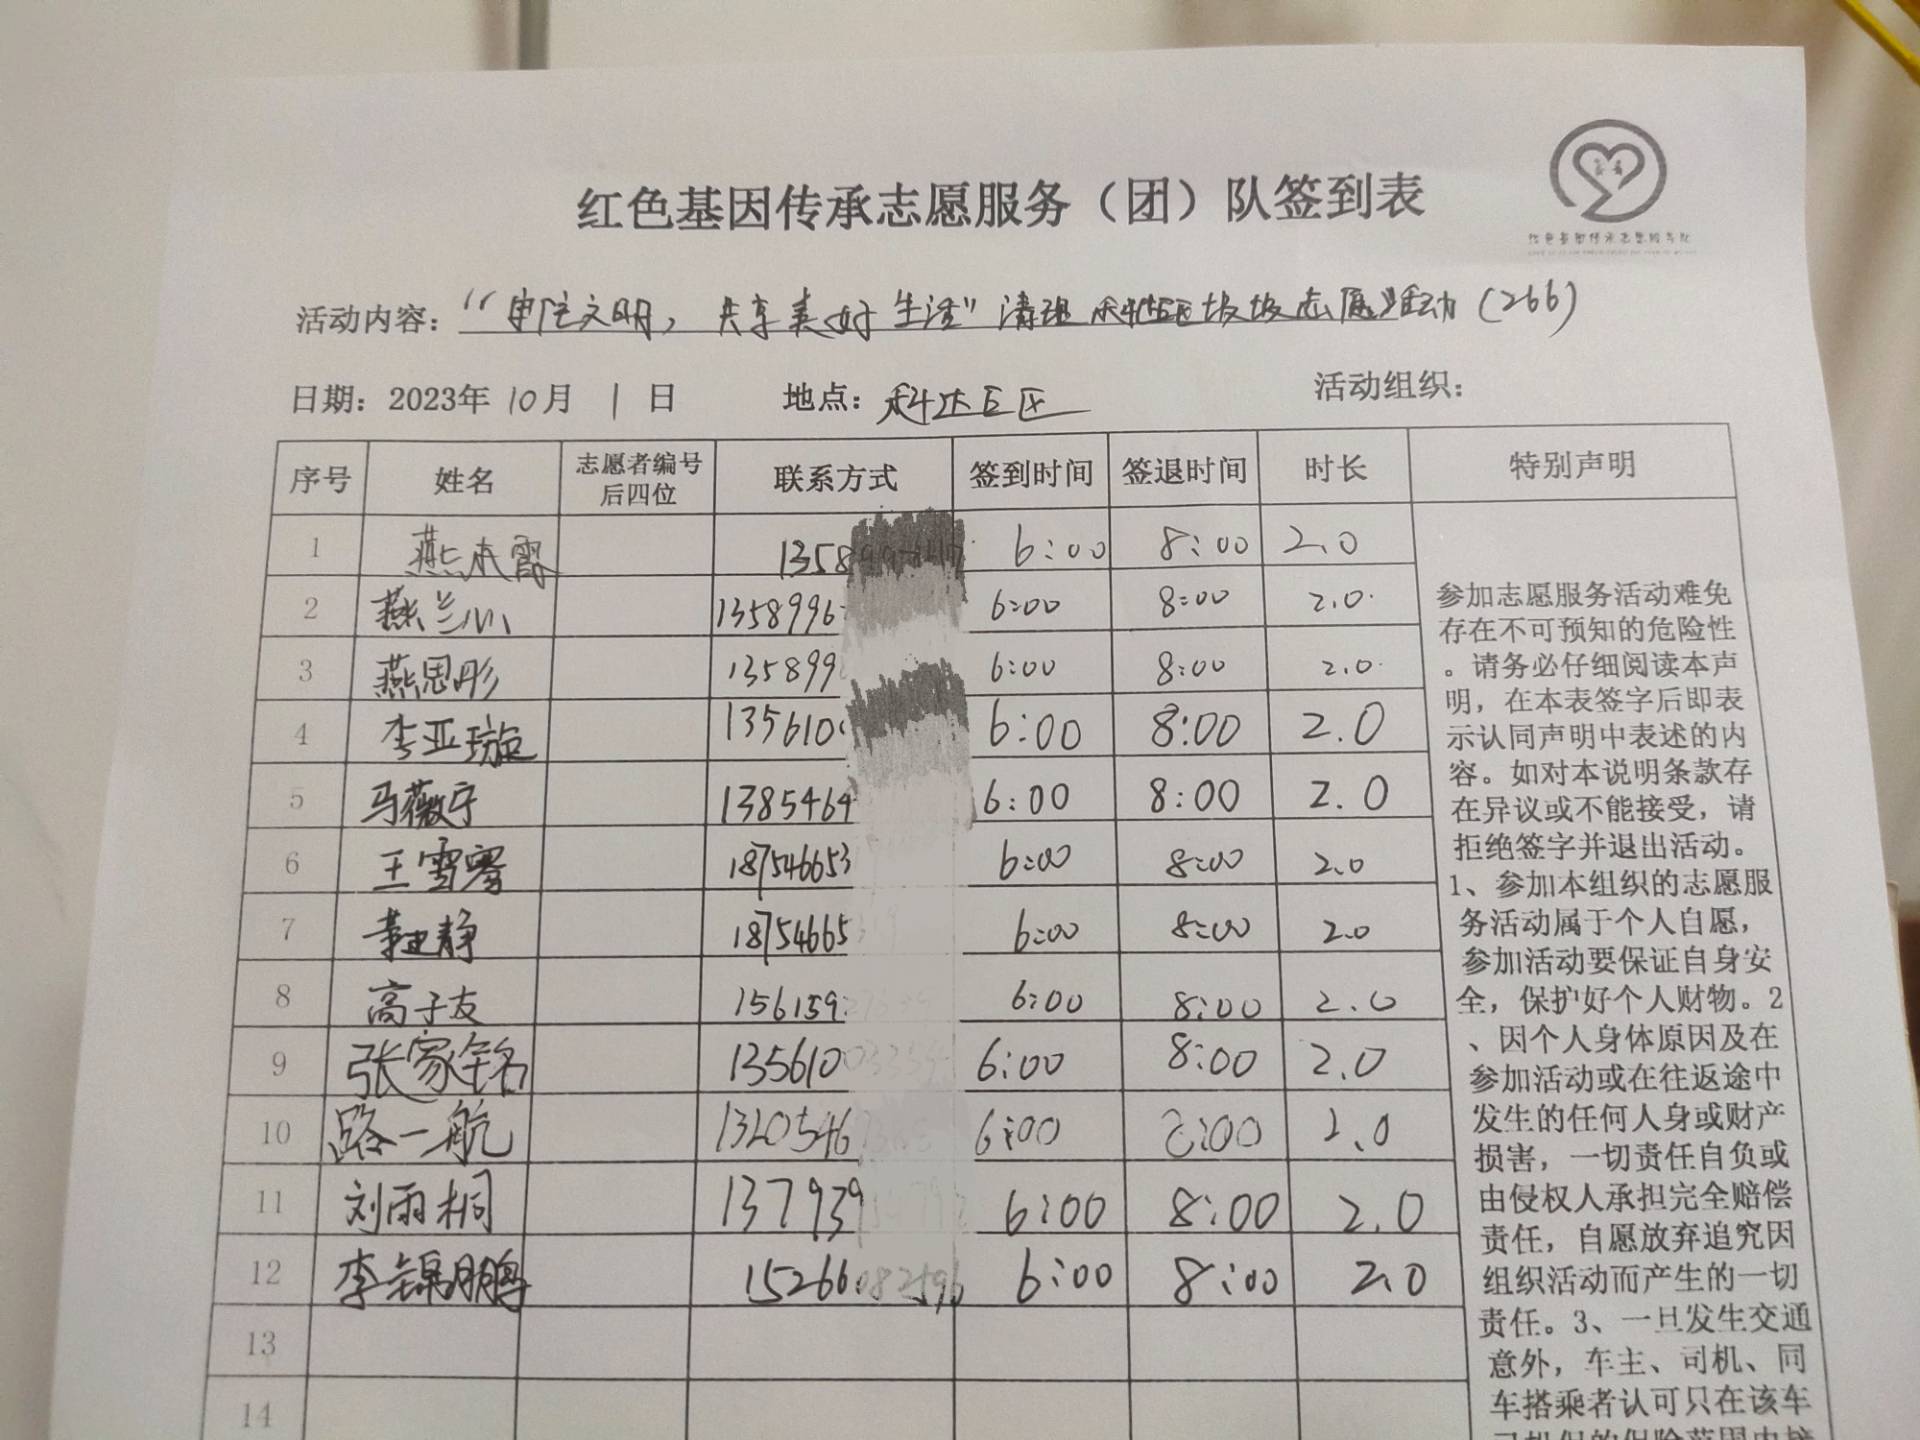 红色基因传承志愿服务（团）队签到表
红色基因传承志愿服务队
活动内容：“ 文明，共享美好生活”清理 志愿活动（266）
日期：2023年10月1日 地点：科达 区 活动组织：
序号 姓名 志愿者编号后四位 联系方式 签到时间 签退时间 时长 特别声明
1 燕 霞 1358 6:00 8:00 2.0
2 燕兰心 1358996 6:00 8:00 2.0
3 燕思彤 135899 6:00 8:00 2.0
4 李亚璇 135610 6:00 8:00 2.0
5 马薇宁 1385464 6:00 8:00 2.0
6 王雪 187546653 6:00 8:00 2.0
7 静 18754665 6:00 8:00 2.0
8 高子友 156159 6:00 8:00 2.0
9 张家铭 135610 6:00 8:00 2.0
10 路一航 1320546 6:00 8:00 2.0
11 刘雨桐 137939 6:00 8:00 2.0
12 李锦鹏 15266 6:00 8:00 2.0
13
14
参加志愿服务活动难免
存在不可预知的危险性
。请务必仔细阅读本声
明，在本表签字后即表
示认同声明中表述的内
容。如对本说明条款存
在异议或不能接受，请
拒绝签字并退出活动。
1、参加本组织的志愿服
务活动属于个人自愿，
参加活动要保证自身安
全，保护好个人财物。2
、因个人身体原因及在
参加活动或在往返途中
发生的任何人身或财产
损害，一切责任自负或
由侵权人承担完全赔偿
责任，自愿放弃追究因
组织活动而产生的一切
责任。3、一旦发生交通
意外，车主、司机、同
车搭乘者认可只在该车